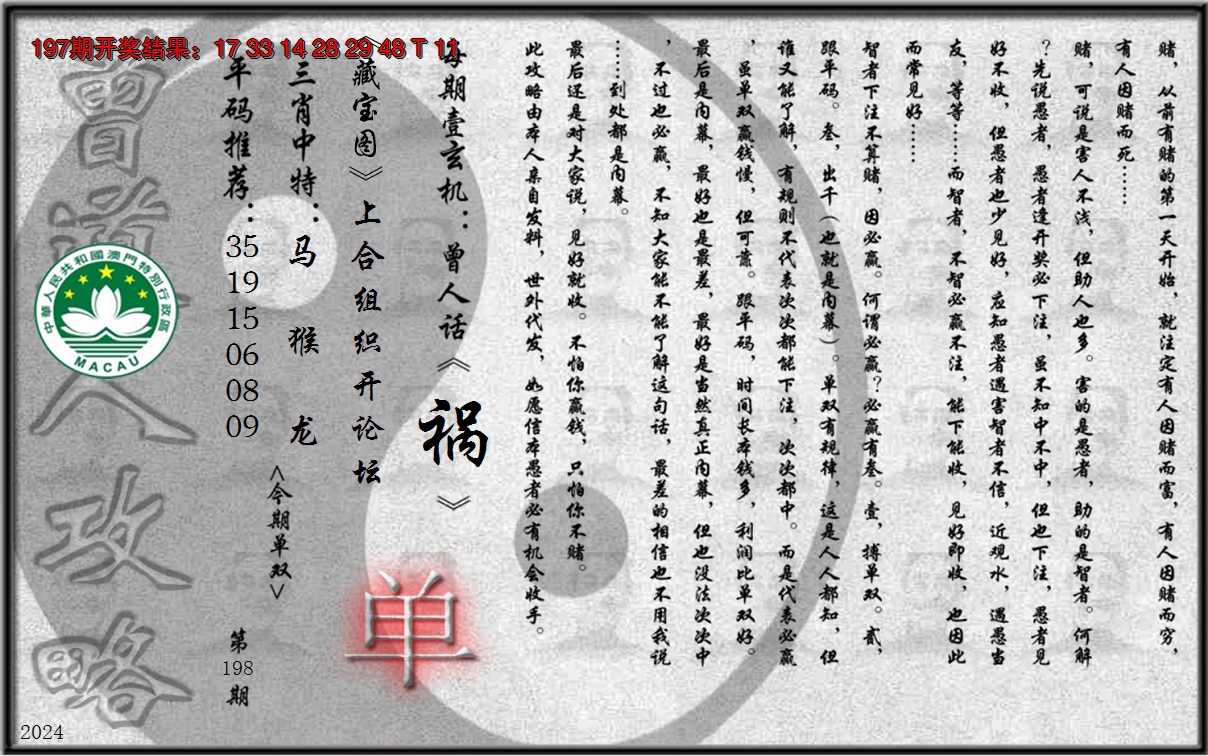 197期开奖结果：17 33 14 28 29 48 T 11
赌，从前有赌的第一天开始，就注定有人因赌而富，有人因赌而穷，
有人因赌而死……
赌，可说是害人不浅，但助人也多。害的是愚者，助的是智者。何解
？先说愚者，愚者逢开奖必下注，虽不知中不中，但也下注，愚者见
好不收，但愚者也少见好，应知愚者遇害智者不信，近观水，遇愚当
友，等等……而智者，不智必赢不注，能下能收，见好即收，也因此
而常见好……
智者下注不算赌，因必赢。何谓必赢？必赢有叁。壹，搏单双。贰，
跟平码。叁，出千（也就是内幕）。单双有规律，这是人人都知，但
谁又能了解，有规则不代表次次都能下注，次次都中。而是代表必赢
，虽单双赢钱慢，但可靠。跟平码，时间长本钱多，利润比单双好。
最后是内幕，最好也是最差，最好是当然真正内幕，但也没法次次中
，不过也必赢，不知大家能不能了解这句话，最差的相信也不用我说
……到处都是内幕。
最后还是对大家说，见好就收。不怕你赢钱，只怕你不赌。
此攻略由本人亲自发料，世外代发，如愿信本愚者必有机会收手。
每期壹玄机：曾人话《祸》
《藏宝图》上合组织开论坛
单
三肖中特：马 猴 龙
<今期单双>
平码推荐：35 19 15 06 08 09
第198期
曾道人攻略
中華人民共和國澳門特別行政區
MACAU
2024